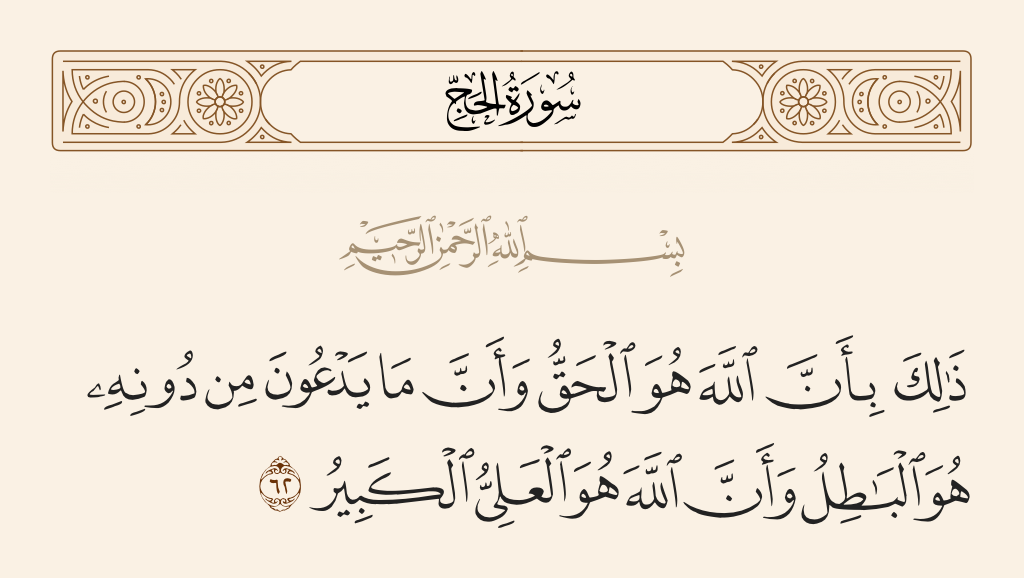 سُورَةُ الحَجِّ
بِسْمِ ٱللَّهِ ٱلرَّحْمَٰنِ ٱلرَّحِيمِ
ذَٰلِكَ بِأَنَّ ٱللَّهَ هُوَ ٱلْحَقُّ وَأَنَّ مَا يَدْعُونَ مِن دُونِهِۦ
هُوَ ٱلْبَـٰطِلُ وَأَنَّ ٱللَّهَ هُوَ ٱلْعَلِىُّ ٱلْكَبِيرُ ٦٢